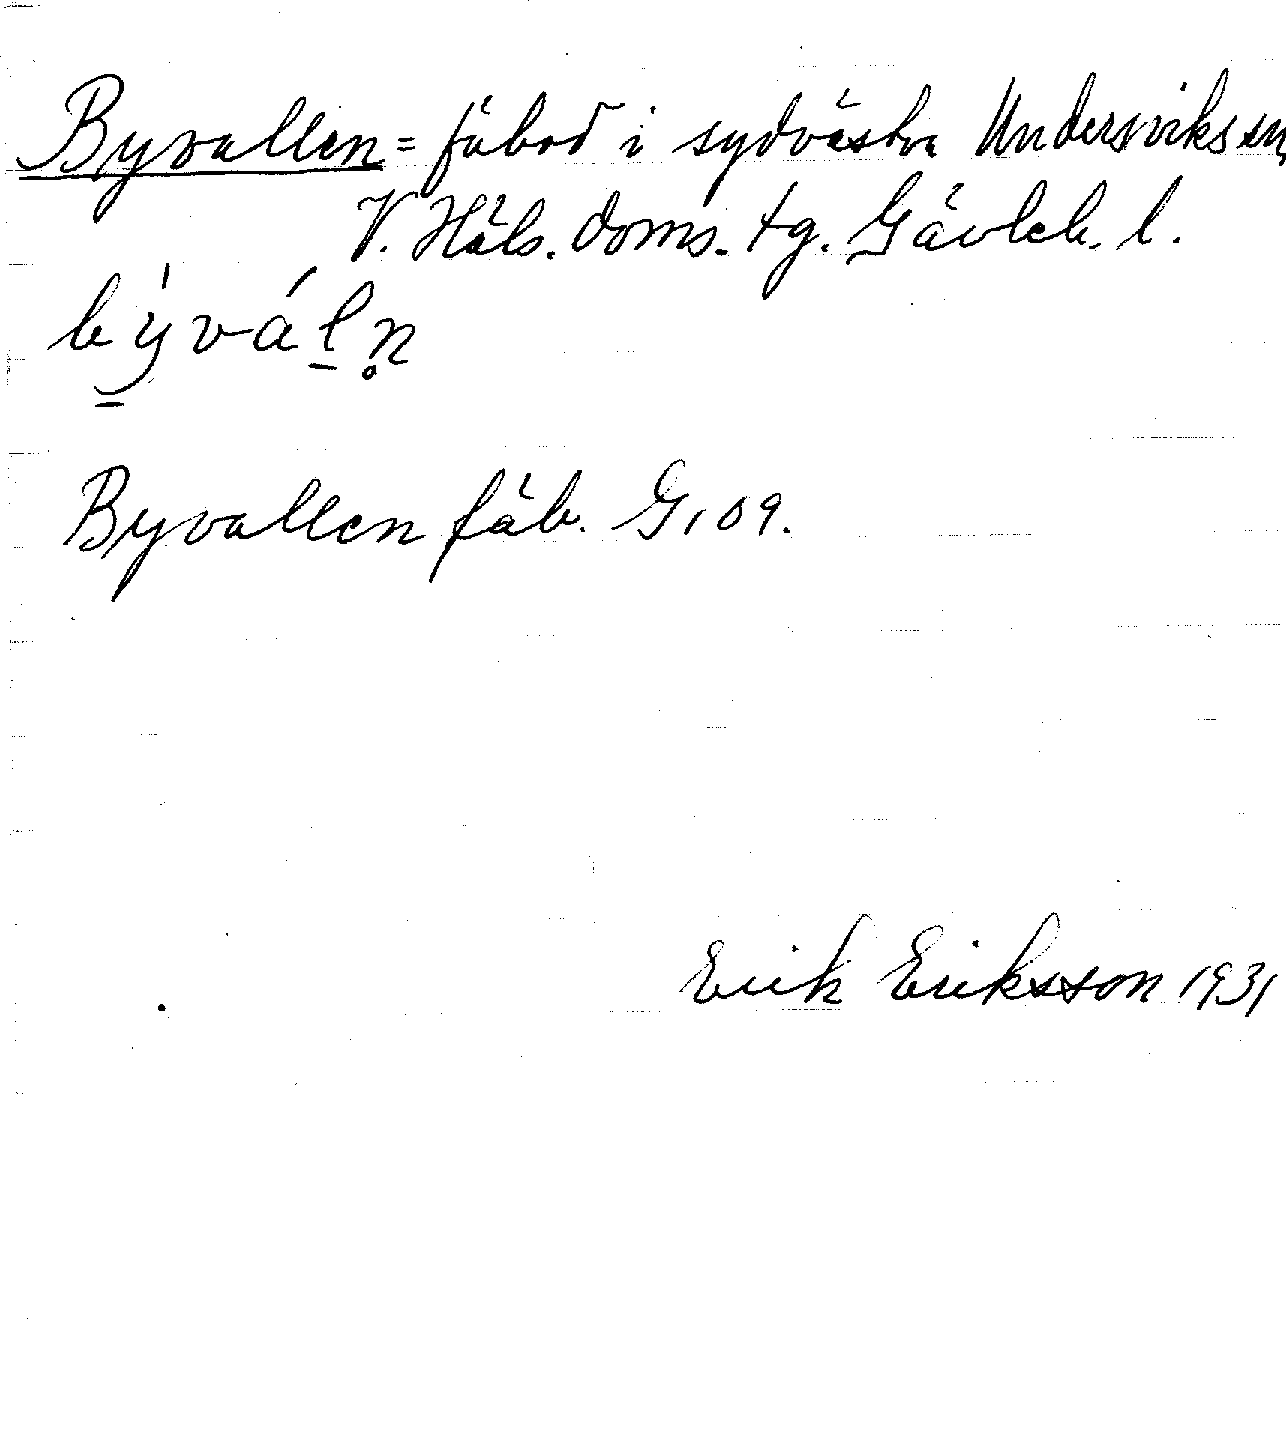 Byvallen = fäbod i sydvästra Undersviks sn,
V. Häls. doms. tg. Gävleb. l.
bý̱váḻn̥
Byvallen fäb. G, 09.
Erik Eriksson 1931